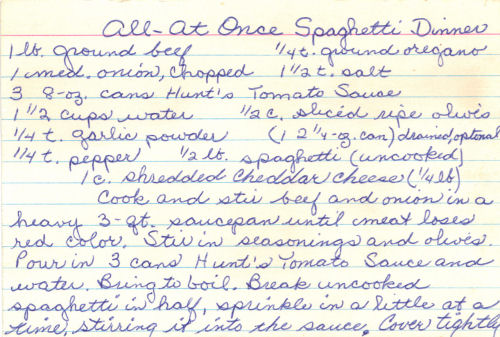 All-At Once Spaghetti Dinner
1 lb. ground beef 1/4 t. ground oregano
1 med. onion, chopped 1 1/2 t. salt
3 8-oz. cans Hunt's Tomato Sauce
1 1/2 cups water 1/2 c. sliced ripe olives
1/4 t. garlic powder (1 2 1/4-oz. can) drained, optonal
1/4 t. pepper 1/2 lb. spaghetti (uncooked)
1 c. shredded Cheddar Cheese (1/4 lb)
Cook and stir beef and onion in a
heavy 3-qt. saucepan until meat loses
red color. Stir in seasonings and olives.
Pour in 3 cans Hunt's Tomato Sauce and
water. Bring to boil. Break uncooked
spaghetti in half, sprinkle in a little at a
time, stirring it into the sauce. Cover tightly